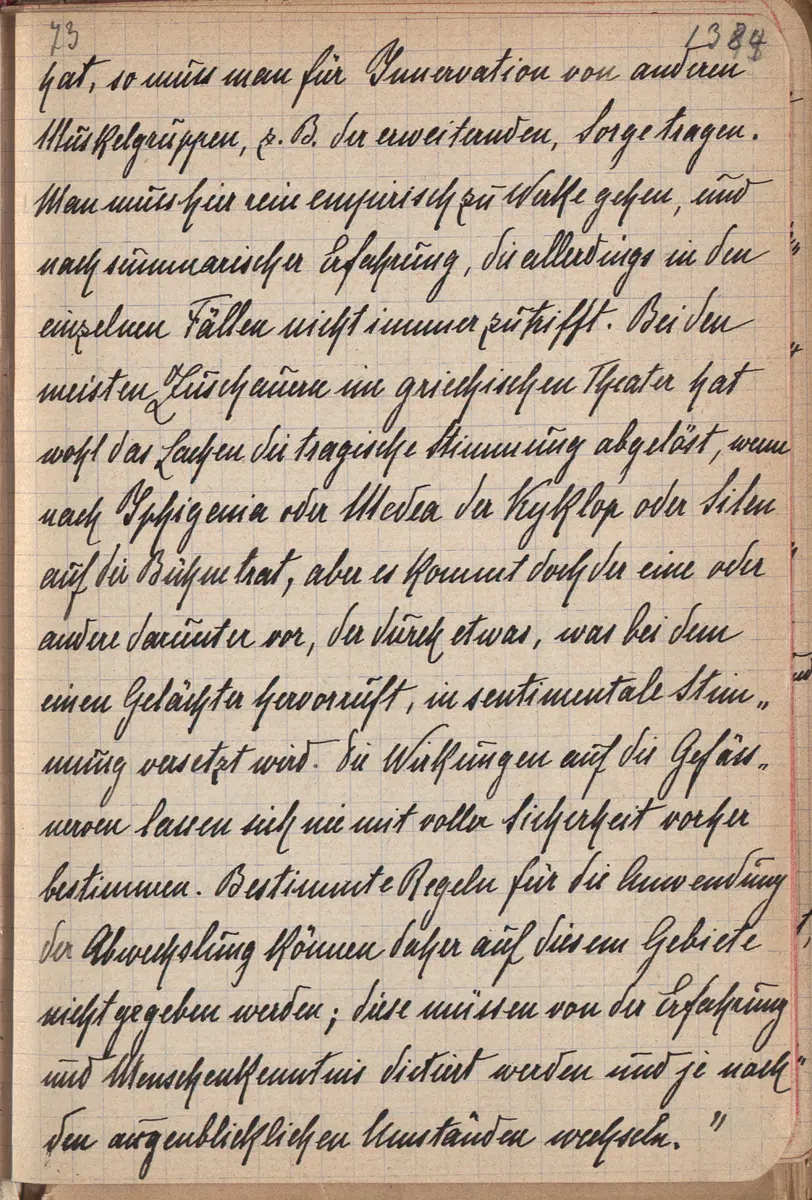 73
hat, so muss man für Innervation von anderen
Muskelgruppen, z. B. der erweiternden, Sorge tragen.
Man muss hier rein empirisch zu Werke gehen, und
nach summarischer Erfahrung, die allerdings in den
einzelnen Fällen nicht immer zutrifft. Bei den
meisten Zuschauern im griechischen Theater hat
wohl das Lachen die tragische Stimmung abgelöst, wenn
nach Iphigenia oder Medea der Kyklop oder Silen
auf die Bühne trat, aber es kommt doch der eine oder
andere darunter vor, der durch etwas, was bei dem
einen Gelächter hervorruft, in sentimentale Stim„
mung versetzt wird. Die Wirkungen auf die Gefäss„
nerven lassen sich nie mit voller Sicherheit vorher
bestimmen. Bestimmte Regeln für die Anwendung
der Abwechslung können daher auf diesem Gebiete
nicht gegeben werden; diese müssen von der Erfahrung
und Menschenkenntnis dictiert werden und je nach
den augenblicklichen Umständen wechseln."